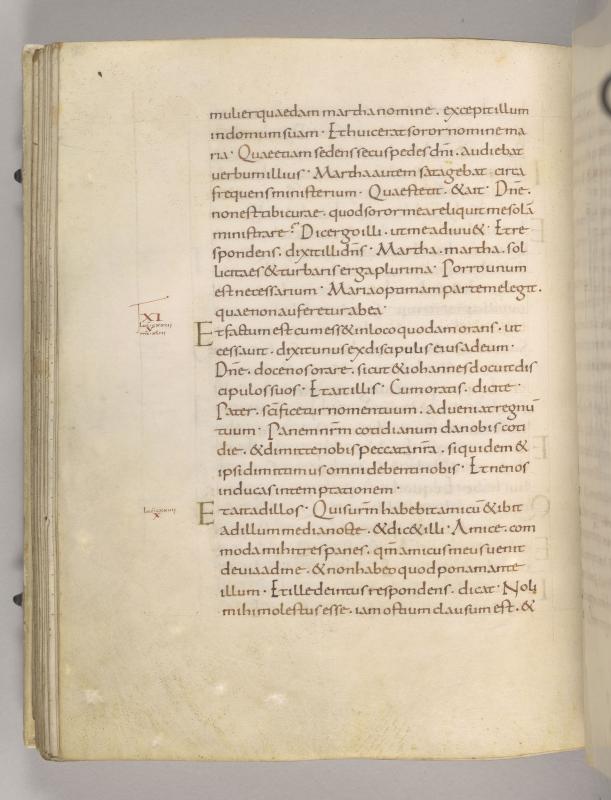 mulier quaedam martha nomine. excepit illum
in domum suam. Et huic erat soror nomine ma
ria. Quae etiam sedens secus pedes dñi. audiebat
verbum illius. Martha autem satagebat circa
frequens ministerium. Quae stetit. & ait. Dñe.
non est tibi curae. quod soror mea reliquit me solã
ministrare. Dic ergo illi. ut me adiuu&. Et re
spondens. dixit illi dñs. Martha. martha. sol
licita es & turbaris erga plurima. Porro unum
est necessarium. Maria optimam partem elegit.
quae non auferetur ab ea.
XI
Et factum est cum ess& in loco quodam orans. ut
cessauit. dixit unus ex discipulis eius ad eum.
Dñe. doce nos orare. sicut & iohannes docuit dis
cipulos suos. Et ait illis. Cum oratis. dicite.
Pater. scificetur nomen tuum. adueniat regnũ
tuum. Panem nrm cotidianum da nobis coti
die. & dimitte nobis peccata nra. siquidem &
ipsi dimittimus omni debenti nobis. Et ne nos
inducas in temptationem.
X
Et ait ad illos. Quis urm habebit amicũ & ibit
ad illum media nocte. & dic& illi. Amice. com
moda mihi tres panes. qm amicus meus uenit
de uia ad me. & non habeo quod ponam ante
illum. Et ille de intus respondens. dicat. Noli
mihi molestus esse. iam ostium clausum est. &